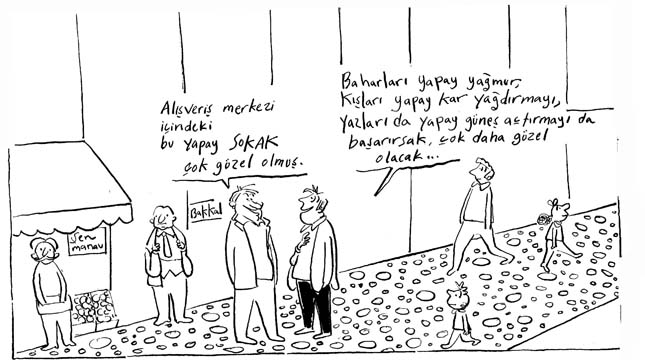 Alışveriş merkezi
içindeki
bu yapay SOKAK
çok güzel olmuş.
Baharları yapay yağmur,
Kışları yapay kar yağdırmayı,
yazları da yapay güneş açtırmayı da
başarırsak, çok daha güzel
olacak...
Bakkal
Şen
manav